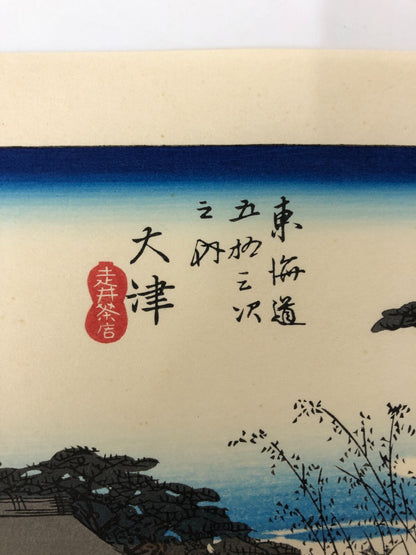 東海道
五拾三次
之内
大津
走井茶店